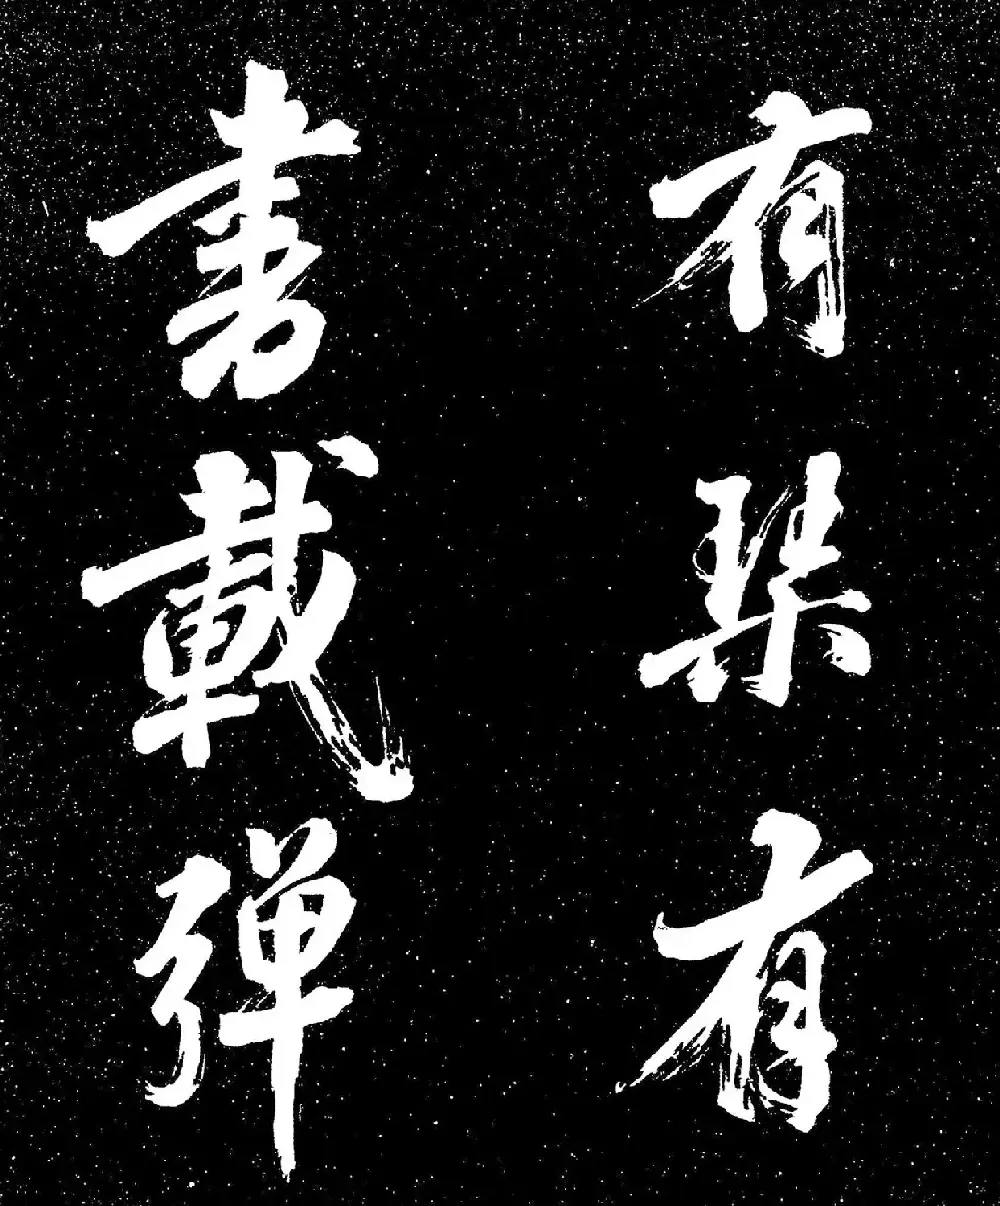 有琴有
書載彈